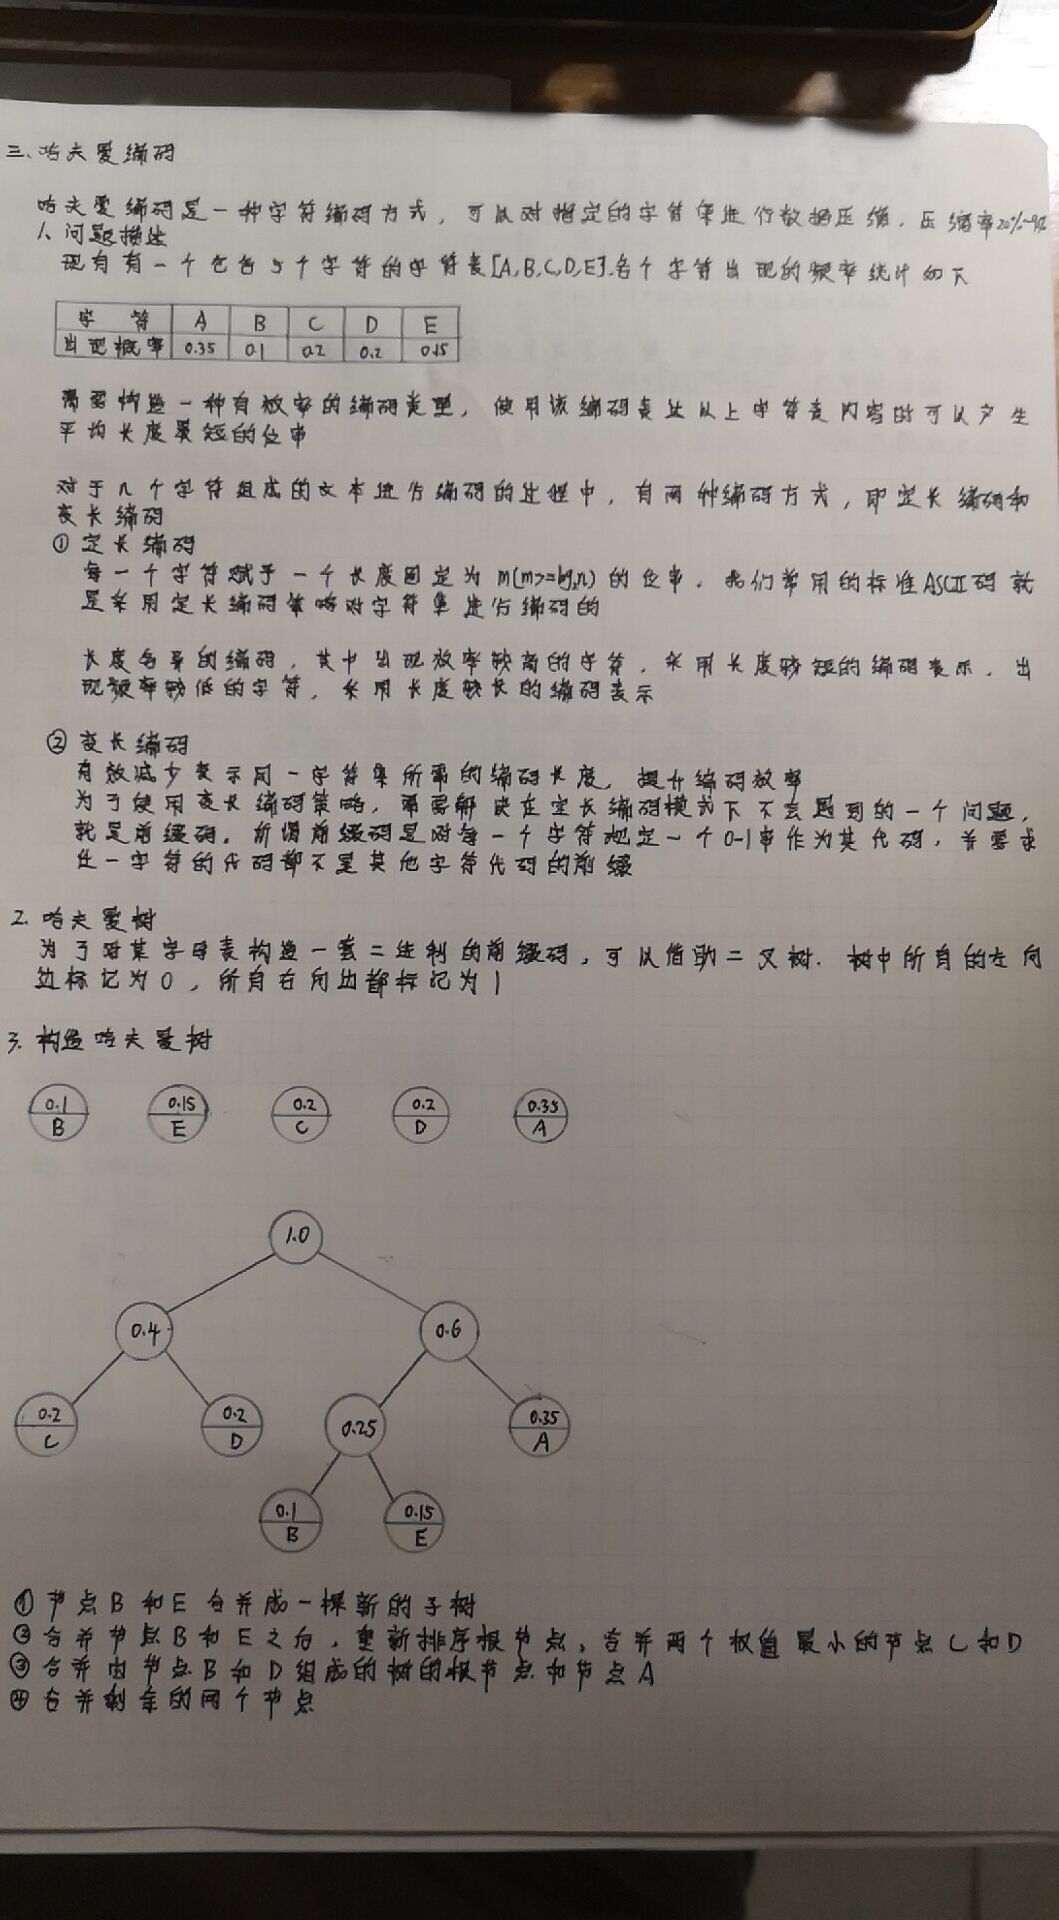 三、哈夫曼编码
哈夫曼编码是一种字符编码方式，可以对指定的字符集进行数据压缩，压缩率20%~90%
1、问题描述
现有有一个包含5个字符的字符表[A,B,C,D,E]，各个字符出现的频率统计如下
字 符 A B C D E
出现概率 0.35 0.1 0.2 0.2 0.15
需要构造一种有效率的编码类型，使用该编码表达以上字符表内容时可以产生
平均长度最短的位串
对于n个字符组成的文本进行编码的过程中，有两种编码方式，即定长编码和
变长编码
① 定长编码
每一个字符赋予一个长度固定为m(m>=log₂n)的位串，我们常用的标准ASCII码就
是采用定长编码策略对字符集进行编码的
长度各异的编码，其中出现效率较高的字符，采用长度较短的编码表示，出
现频率较低的字符，采用长度较长的编码表示
② 变长编码
有效减少表示同一字符集所需的编码长度，提升编码效率
为了使用变长编码策略，需要解决在定长编码模式下不会遇到的一个问题，
就是前缀码，所谓前缀码是对每一个字符规定一个0-1串作为其代码，并要求
任一字符的代码都不是其他字符代码的前缀
2. 哈夫曼树
为了对某字母表构造一套二进制的前缀码，可以借助二叉树，树中所有的左向
边标记为0，所有右向边都标记为1
3. 构造哈夫曼树
0.1 0.15 0.2 0.2 0.35
B E C D A
1.0
0.4 0.6
0.2 0.2 0.25 0.35
C D A
0.1 0.15
B E
① 节点B和E合并成一棵新的子树
② 合并节点B和E之后，重新排序根节点，合并两个权值最小的节点C和D
③ 合并由节点B和D组成的树的根节点和节点A
④ 合并剩余的两个节点